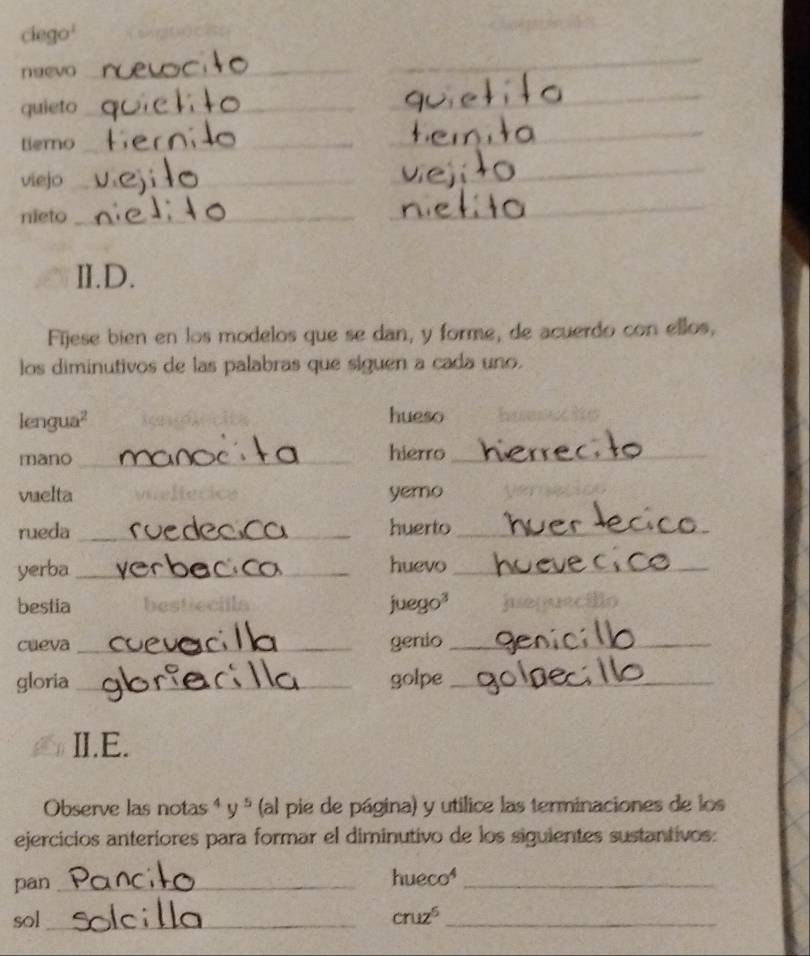 ciego¹
nuevo nuevocito
quieto quietito quietito
tierno tiernito ternita
viejo viejito viejito
nieto nietito nietito
II.D.
Fíjese bien en los modelos que se dan, y forme, de acuerdo con ellos,
los diminutivos de las palabras que siguen a cada uno.
lengua² lengüecita hueso huesecito
mano manocita hierro hierrecito
vuelta vueltecica yerno yernecico
rueda ruedecica huerto huertecico
yerba yerbecica huevo huevecico
bestia bestiecilla juego³ jueguecillo
cueva cuevacilla genio genicillo
gloria gloriecilla golpe golpecillo
II.E.
Observe las notas ⁴ y ⁵ (al pie de página) y utilice las terminaciones de los
ejercicios anteriores para formar el diminutivo de los siguientes sustantivos:
pan Pancito hueco⁴
sol solcilla cruz⁵